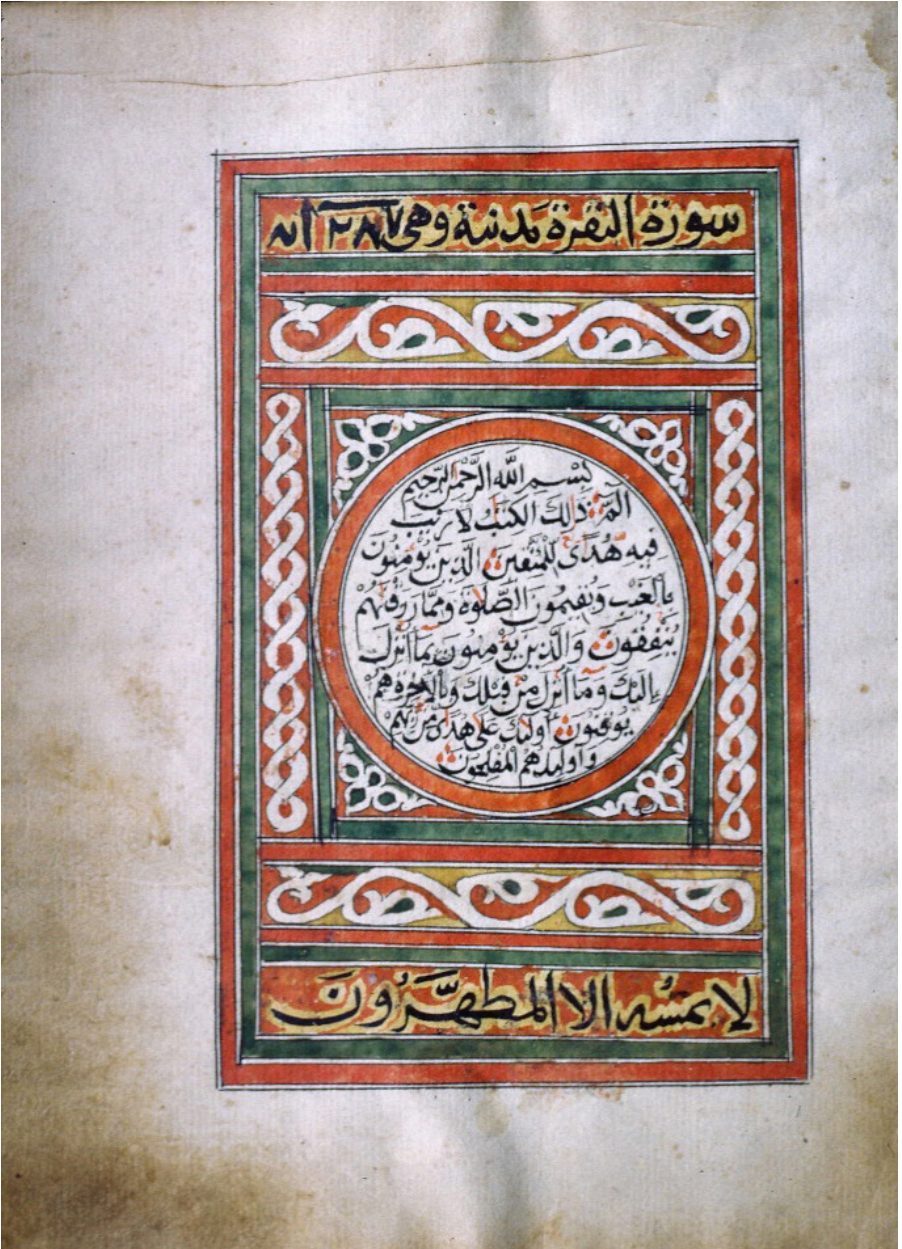 سورة البقرة مدنية وهي ٢٨٧ اية
بِسْمِ اللَّهِ الرَّحْمٰنِ الرَّحِيمِ
الٓمّٓ ذٰلِكَ الْكِتٰبُ لَا رَيْبَ
فِيهِ هُدًى لِلْمُتَّقِينَ الَّذِينَ يُؤْمِنُونَ
بِالْغَيْبِ وَيُقِيمُونَ الصَّلٰوةَ وَمِمَّا رَزَقْنٰهُمْ
يُنْفِقُونَ وَالَّذِينَ يُؤْمِنُونَ بِمَا أُنْزِلَ
إِلَيْكَ وَمَا أُنْزِلَ مِنْ قَبْلِكَ وَبِالْآخِرَةِ هُمْ
يُوقِنُونَ أُولٰئِكَ عَلٰى هُدًى مِنْ رَبِّهِمْ
وَأُولٰئِكَ هُمُ الْمُفْلِحُونَ
لا يمسُّه الا المطهَّرُونَ